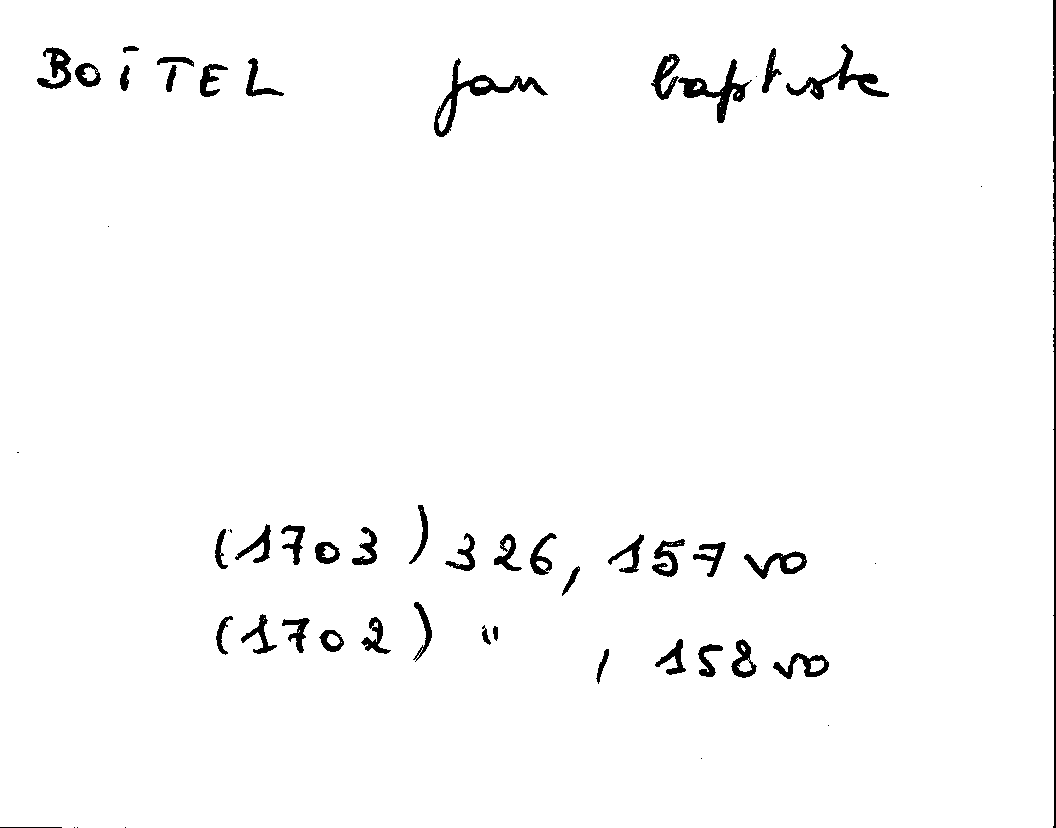 BOITEL jan baptiste
(1703) 326, 157 vo
(1702) " , 158 vo